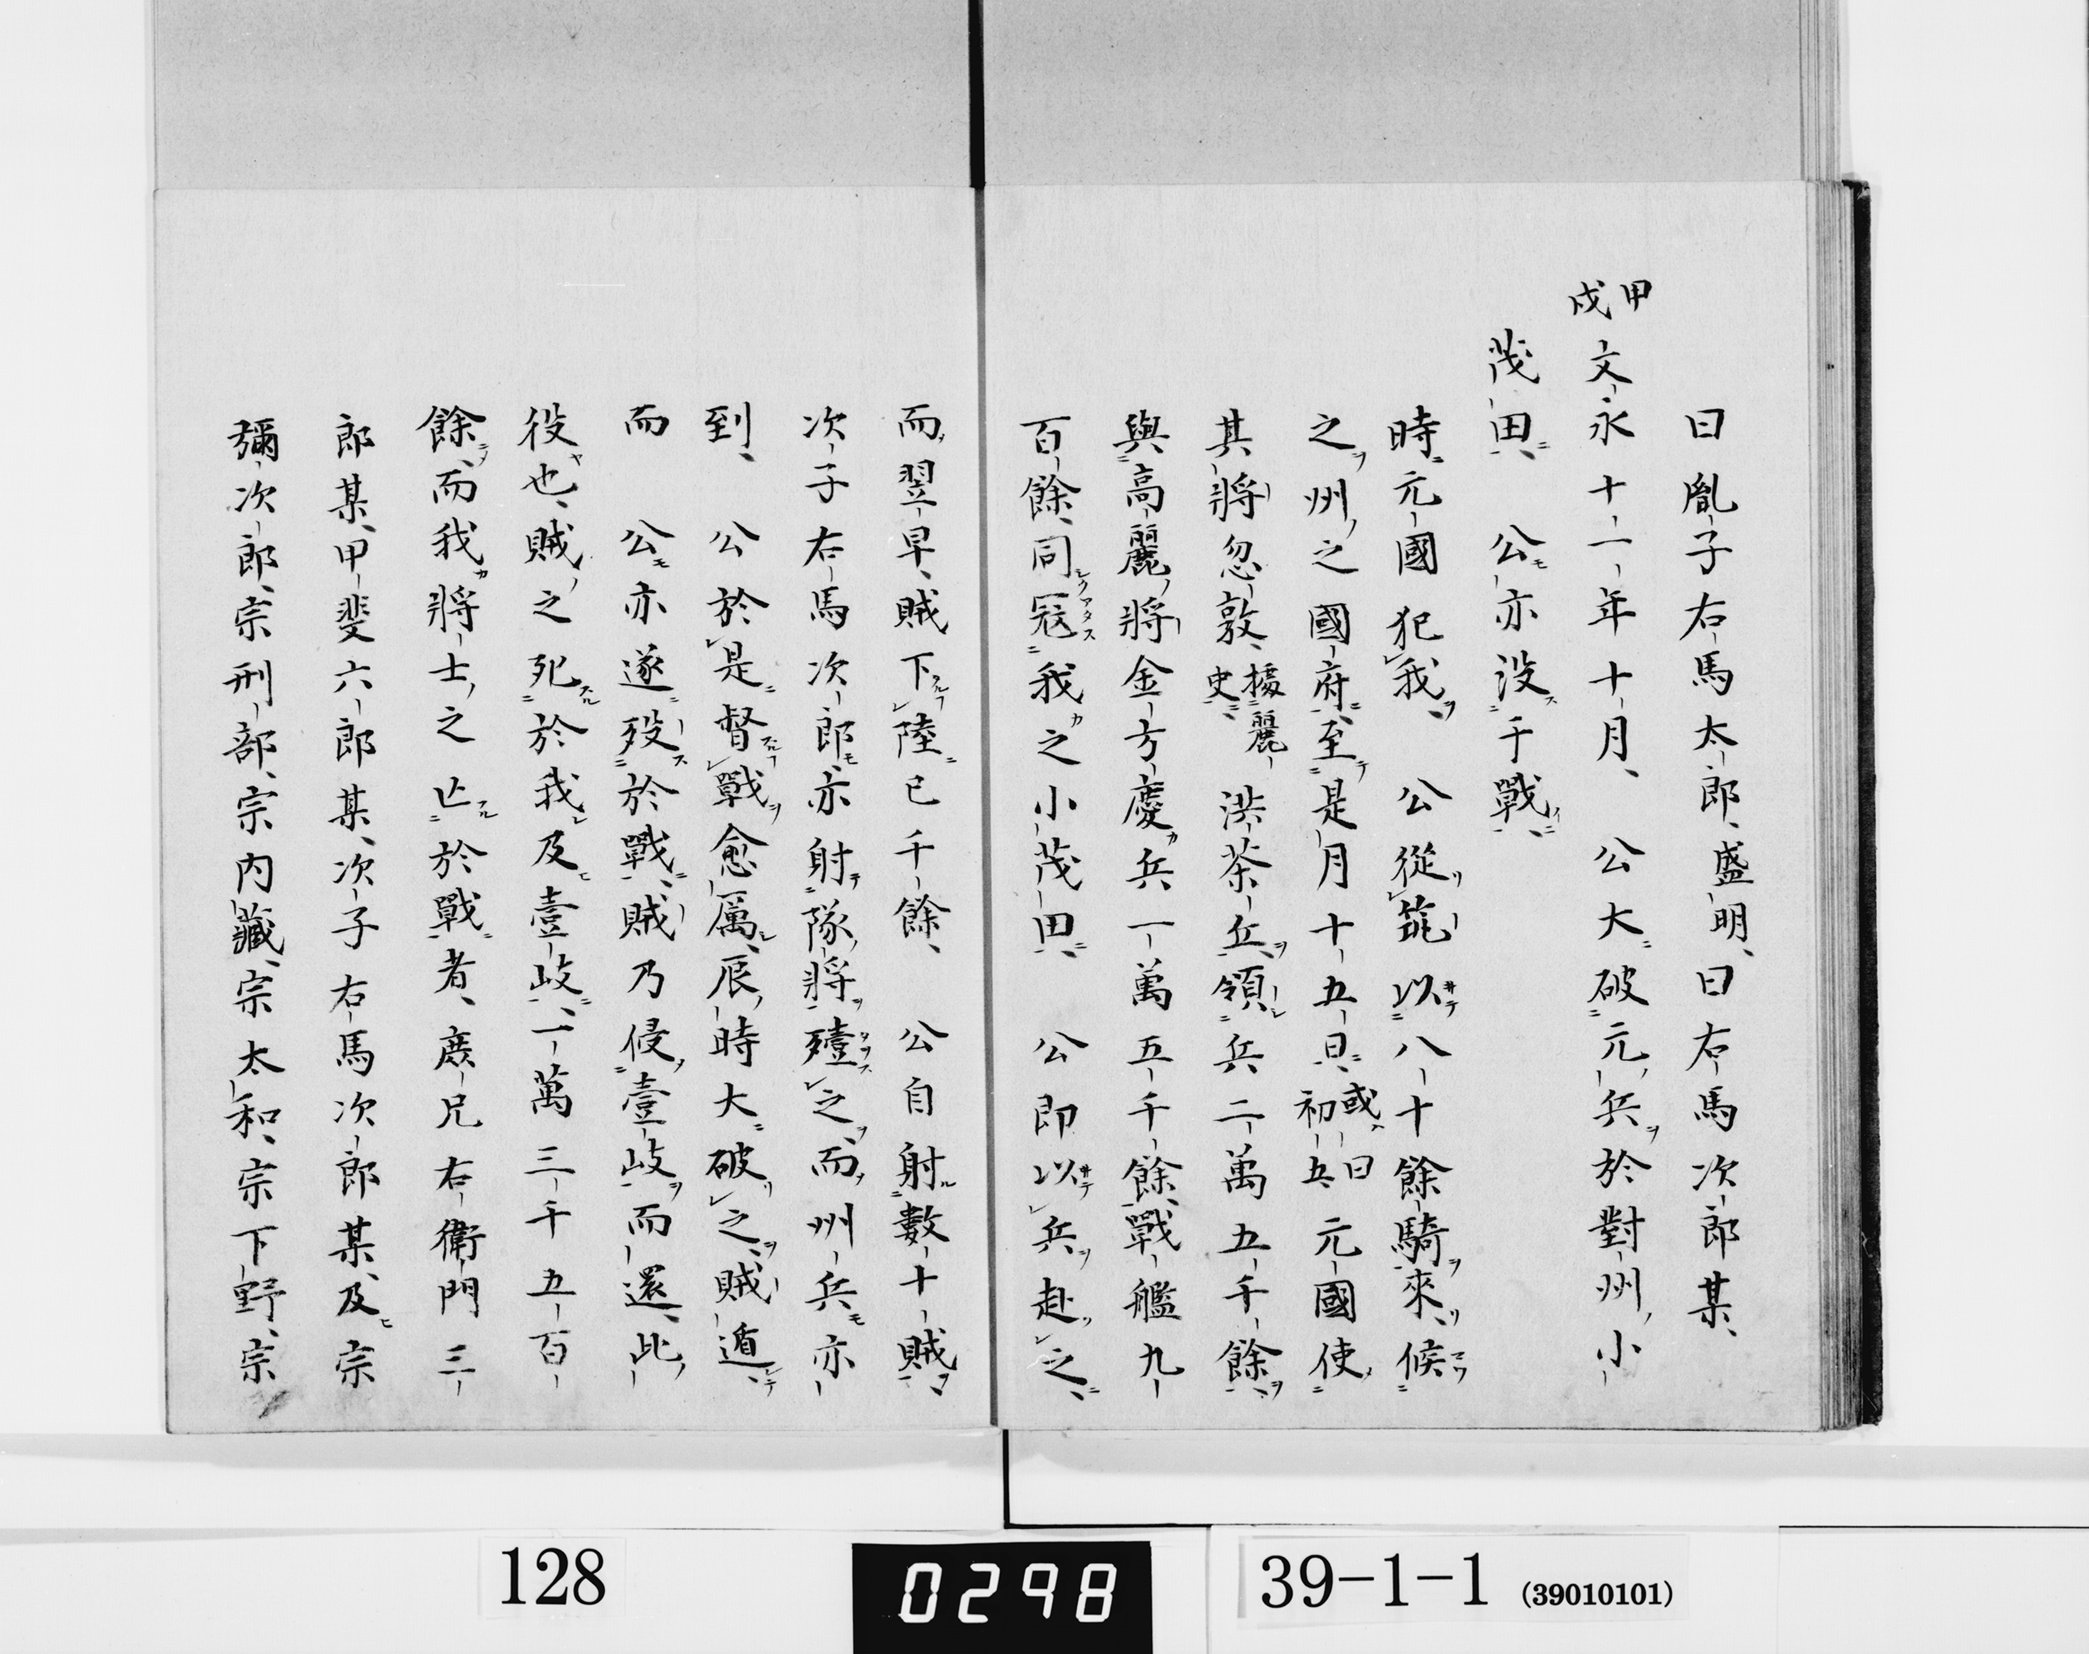 曰胤子右馬太郎盛明、曰右馬次郎某、
甲戌
文永十一年十月、　公大破元兵於對州小
茂田、　公亦没于戰、
時元國犯我、　公從筑以八十餘騎來候
之州之國府、至是月十五日、或曰初五元國使
其將忽敦、據麗史、洪茶丘、領兵二萬五千餘、
與高麗將金方慶兵一萬五千餘、戰艦九
百餘、同冦我之小茂田、　公即以兵赴之、
而翌早、賊下陸已千餘、　公自射數十賊、
次子右馬次郎亦射隊將殪之、而州兵亦
到、　公於是督戰愈厲、辰時大破之、賊遁、
而　公亦遂歿於戰、賊乃侵壹岐而還、此
役也、賊之死於我及壹岐、一萬三千五百
餘、而我將士之亡於戰者、庶兄右衛門三
郎某、甲斐六郎某、次子右馬次郎某、及宗
彌次郎、宗刑部、宗内藏、宗太和、宗下野、宗
128
0298
39-1-1 (39010101)